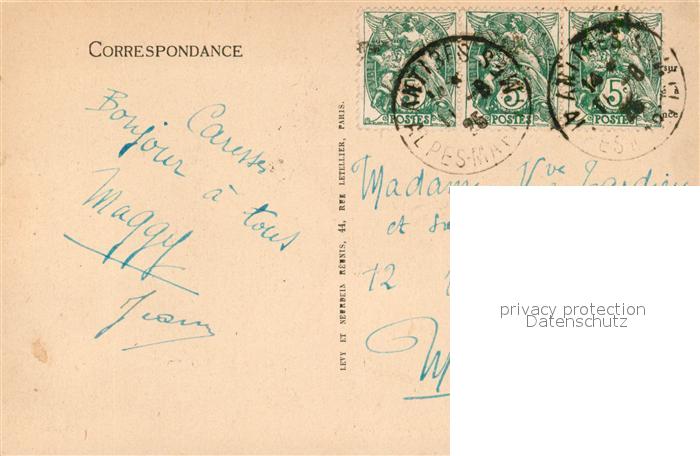 CORRESPONDANCE
Caresses
Bonjour à tous
Maggy
Jean
LEVY ET NEURDEIN RÉUNIS, 44, RUE LETELLIER, PARIS.
5 POSTES
5 POSTES
5 POSTES
ANTIBES
ALPES-MAR
Madame Vve Tardieu
et
12
privacy protection
Datenschutz